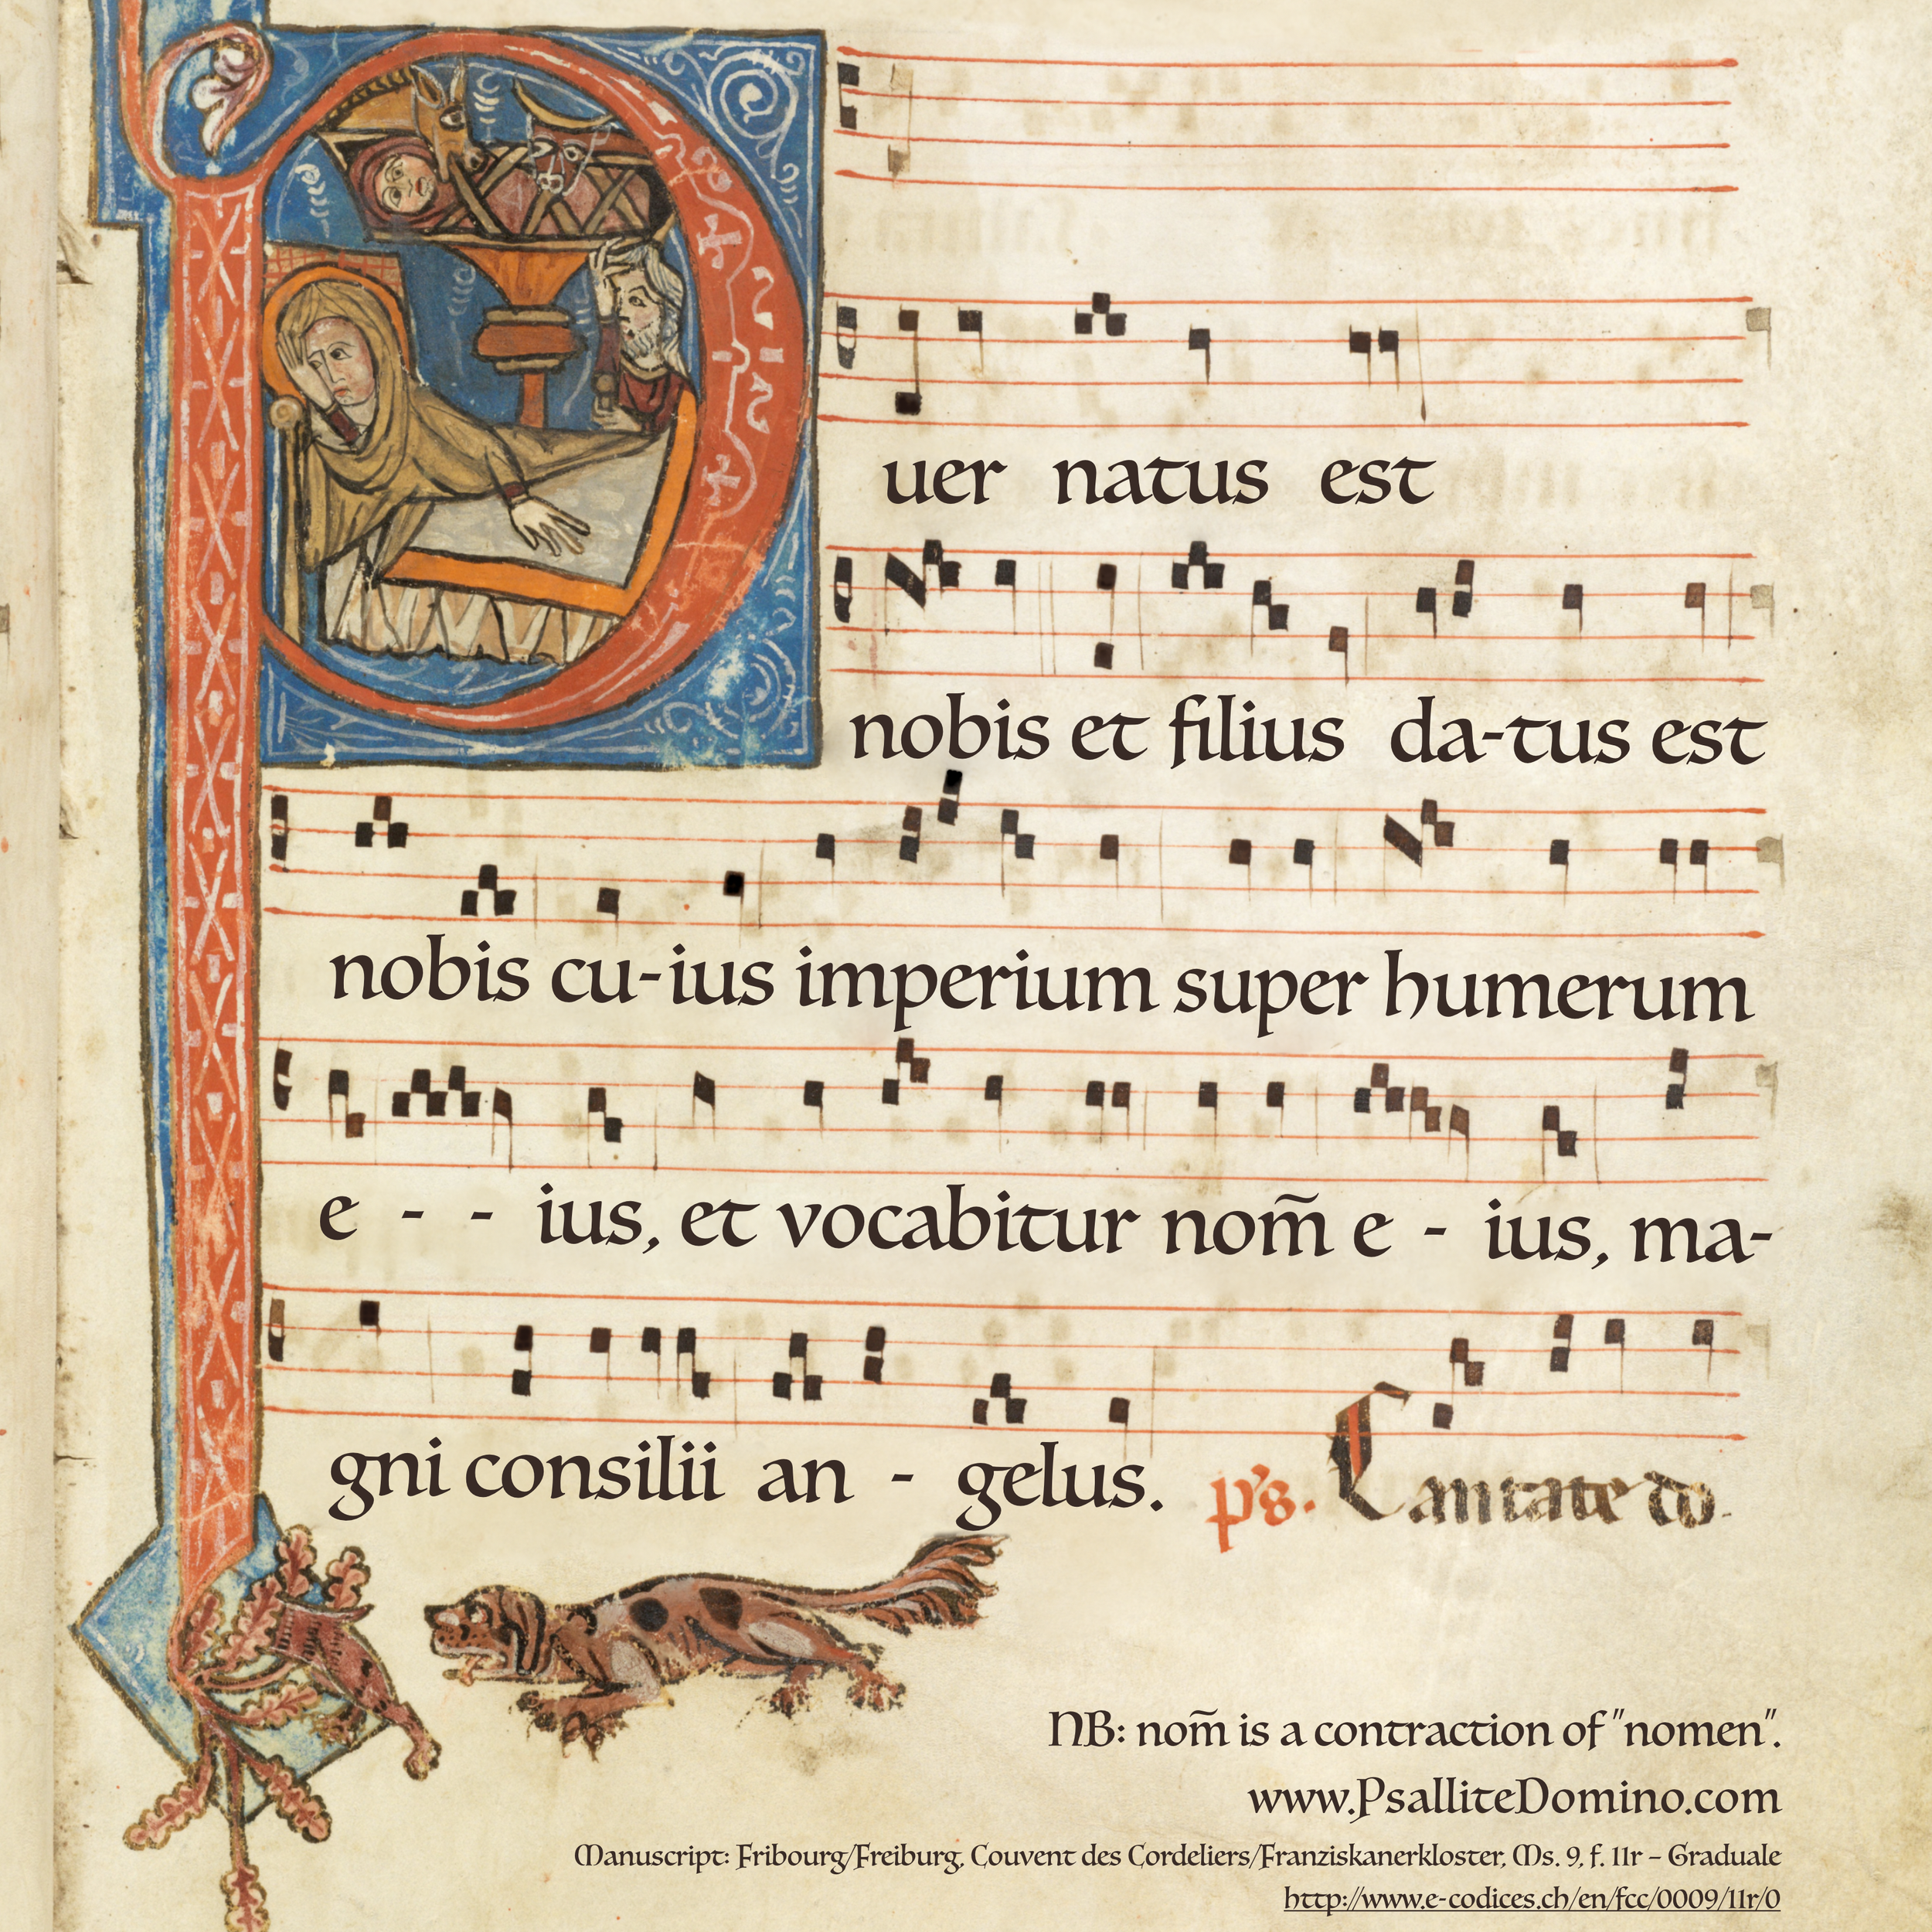 Puer natus est
nobis et filius da-tus est
nobis cu-ius imperium super humerum
e - - ius, et vocabitur nom̃ e - ius, ma-
gni consilii an - gelus. ps. Cantate do.
NB: nom̃ is a contraction of "nomen".
www.PsalliteDomino.com
Manuscript: Fribourg/Freiburg, Couvent des Cordeliers/Franziskanerkloster, Ms. 9, f. 11r – Graduale
http://www.e-codices.ch/en/fcc/0009/11r/0